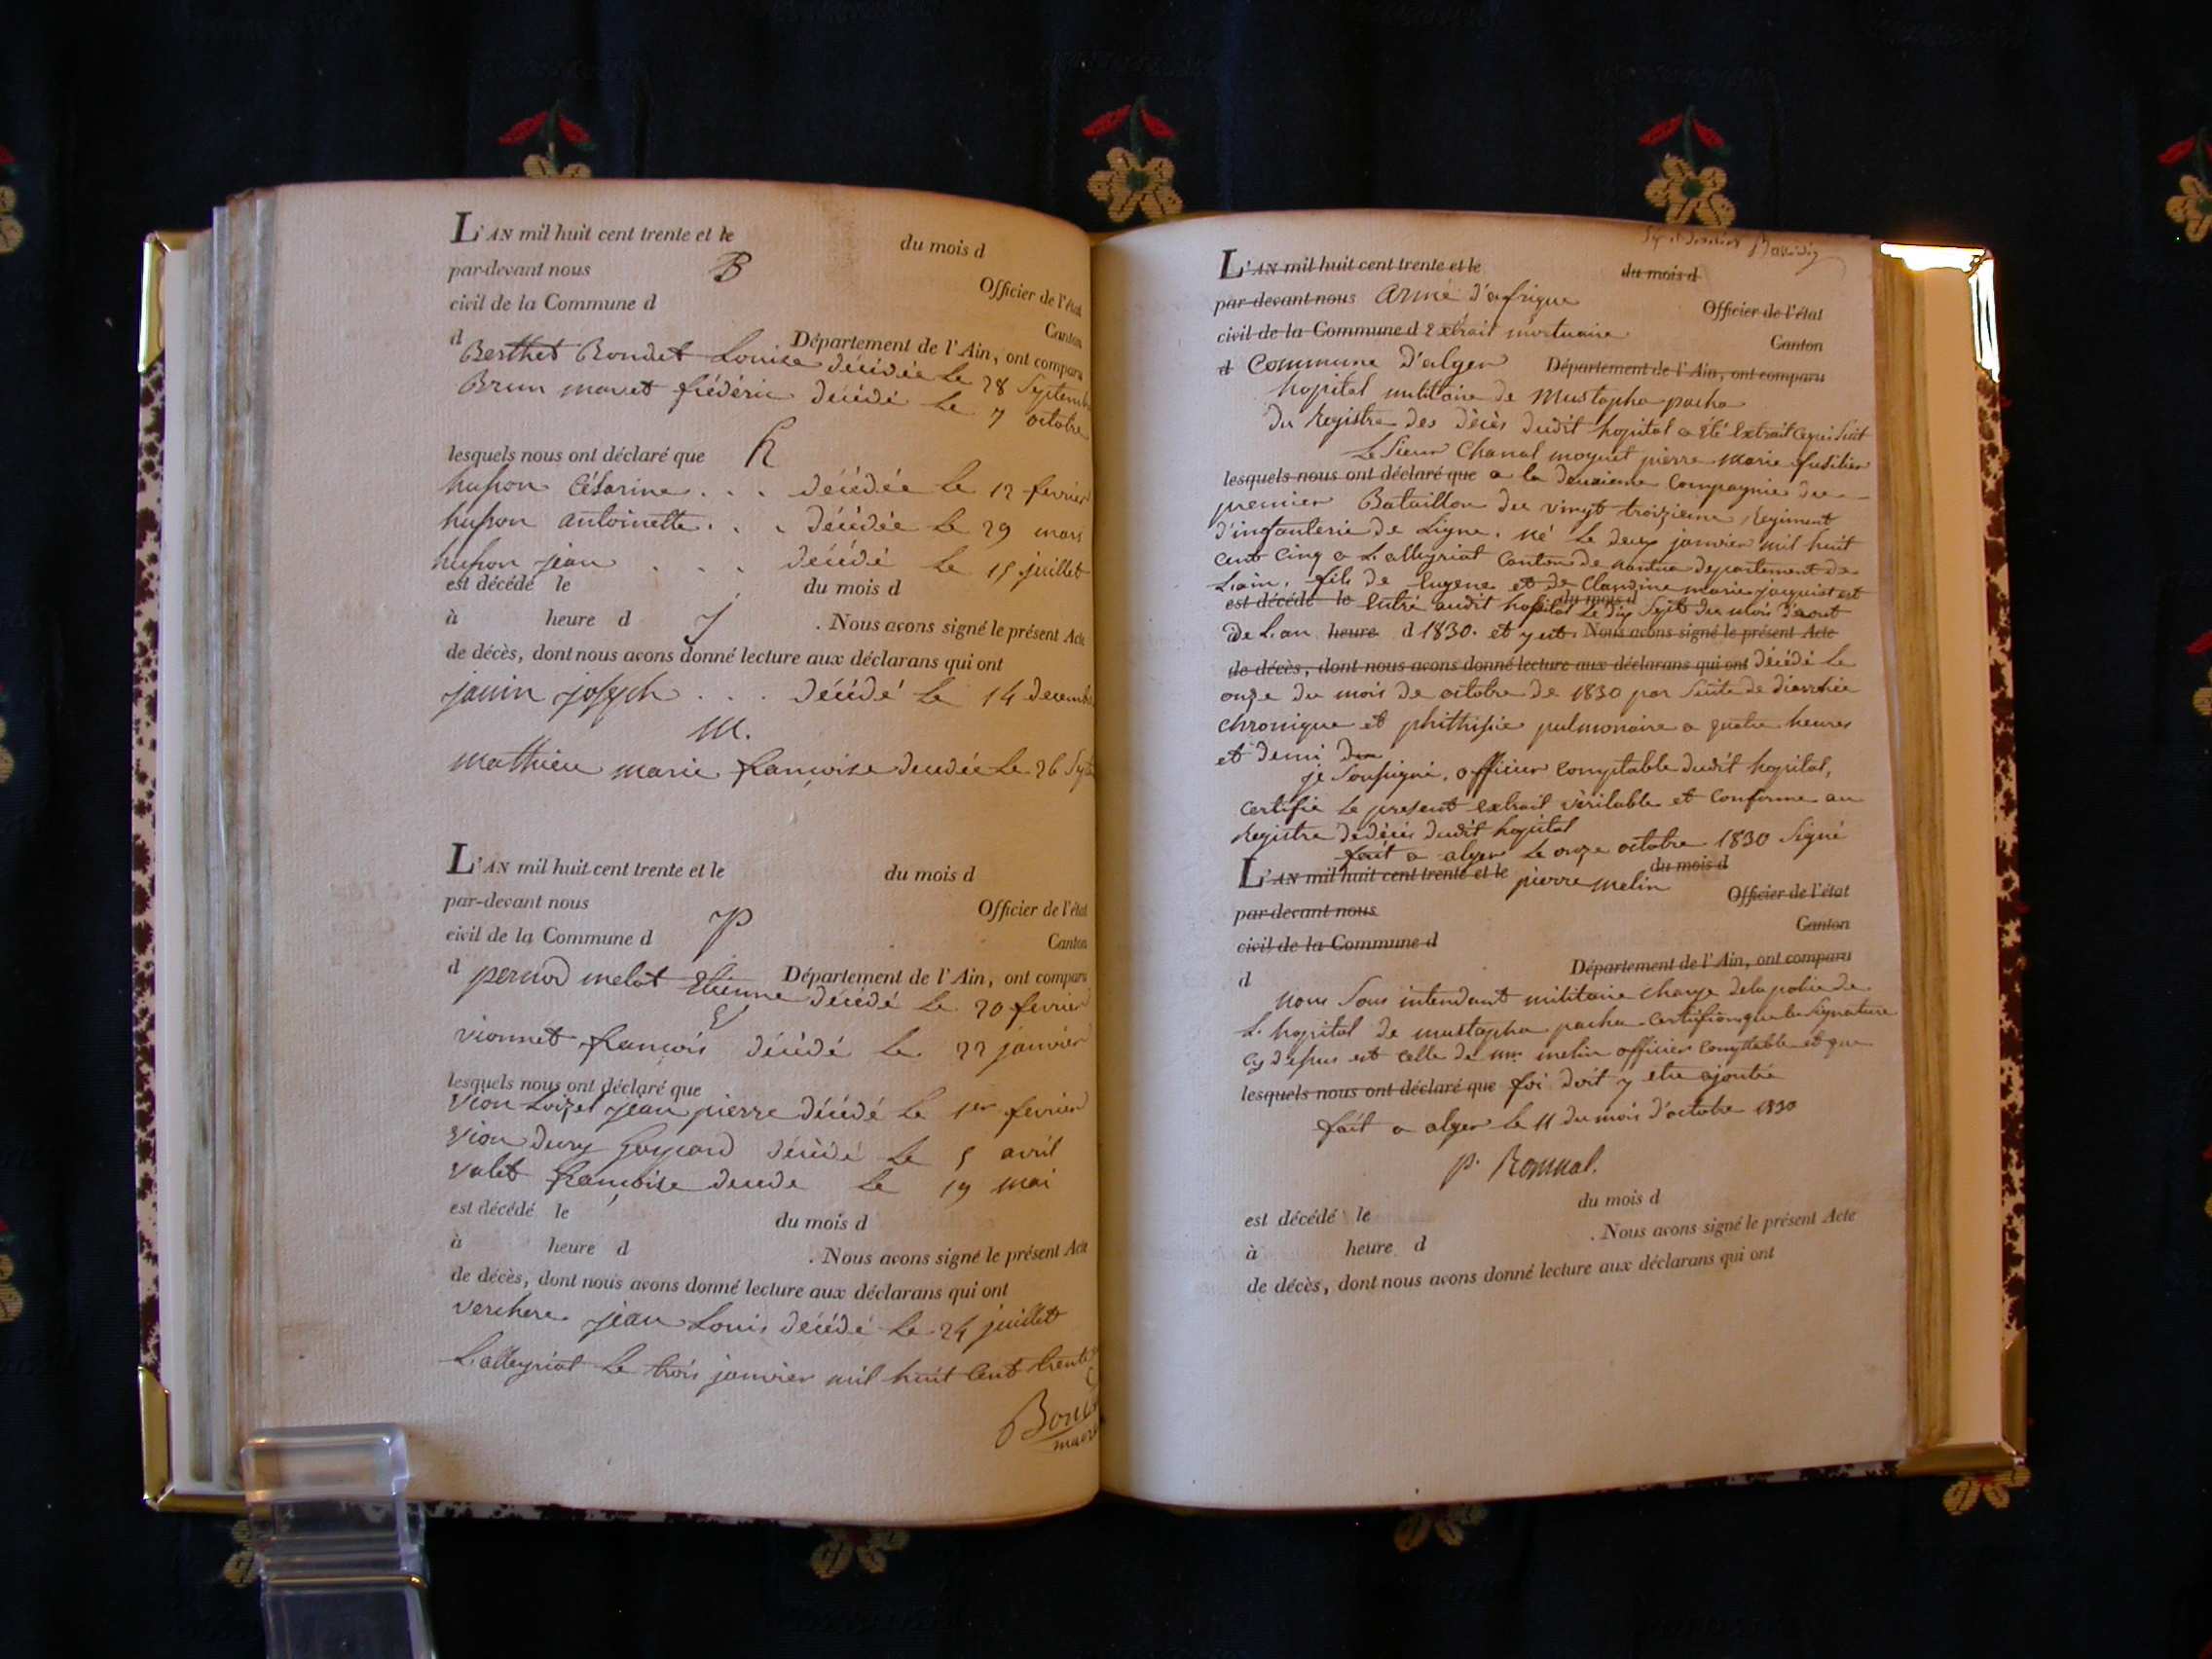 L'AN mil huit cent trente et le du mois d
par-devant nous B Officier de l'état
civil de la Commune d Canton
d Département de l'Ain, ont comparu
Berthet Bondet Louise décédée le 28 Septembre
Brun mavet frédéric décédé le 7 octobre
lesquels nous ont déclaré que h
husson Césarine . . . décédée le 12 fevrier
husson antoinette . . . décédée le 29 mars
husson jean . . . décédé le 15 juillet
est décédé le du mois d
à heure d J . Nous avons signé le présent Acte
de décès, dont nous avons donné lecture aux déclarans qui ont
janin joseph . . . décédé le 14 decemb
M.
mathieu marie françoise decedée le 26 Sept
L'AN mil huit cent trente et le du mois d
par-devant nous P Officier de l'état
civil de la Commune d Canton
d Département de l'Ain, ont comparu
pernod melot Etienne décédé le 20 fevrier
V
vionnet francois décédé le 22 janvier
lesquels nous ont déclaré que
vion Loizel jean pierre décédé le 1er fevrier
vion dury gaspard décédé le 5 avril
valet francoise decede le 19 mai
est décédé le du mois d
à heure d . Nous avons signé le présent Acte
de décès, dont nous avons donné lecture aux déclarans qui ont
verchere jean Louis décédé le 24 juillet
Lalleyriat le trois janvier mil huit cent trente
L'AN mil huit cent trente et le du mois d
par-devant nous armé d'afrique Officier de l'état
civil de la Commune d Extrait mortuaire Canton
d Commune d'alger Département de l'Ain, ont comparu
hopital militaire de Mustapha pacha
du Registre des décès dudit hopital a été Extrait ce qui Suit
Le Sieur Chanal moquet pierre marie fusilier
lesquels nous ont déclaré que a la deuxieme Compagnie du
premier Bataillon du vingt troizieme Regiment
d'infanterie de Ligne. né le deux janvier mil huit
cent cinq a Lalleyriat Canton de nantua departement de
L'ain. fils de Eugene et de Claudine marie jacquiot est
est décédé le Entré audit hopital le dix Sept du mois d'aout du mois d
à de L'an heure d 1830. et y est Nous avons signé le présent Acte
de décès, dont nous avons donné lecture aux déclarans qui ont décédé le
onze du mois de octobre de 1830 par Suite de diarrhée
chronique et phithisie pulmonaire a quatre heures
et demi
je Soussigné, officier comptable dudit hopital,
certifie le present extrait véritable et conforme au
Registre de décès dudit hopital
fait a alger le onze octobre 1830 Signé
L'AN mil huit cent trente et le pierre melin du mois d
par-devant nous Officier de l'état
civil de la Commune d Canton
d Département de l'Ain, ont comparu
nous Sous intendant militaire charge de la police de
L'hopital de mustapha pacha certifions que la Signature
cy dessus est celle de mr melin officier comptable et que
lesquels nous ont déclaré que foi doit y etre ajoutée
fait a alger le 11 du mois d'octobre 1830
p. Romual.
est décédé le du mois d
à heure d . Nous avons signé le présent Acte
de décès, dont nous avons donné lecture aux déclarans qui ont